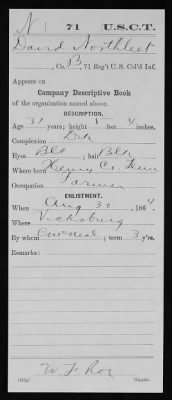 N 71 U.S.C.T.
David Northleet
, Co. B, 71 Reg't U. S. Col'd Inf.
Appears on
Company Descriptive Book
of the organization named above.
DESCRIPTION.
Age 31 years; height 5 feet 4 inches.
Complexion Dark
Eyes Blk; hair Blk
Where born Henry Co. Tenn
Occupation Farmer
ENLISTMENT.
When Aug 30, 1864
Where Vicksburg
By whom; term 3 y'rs.
Remarks:
W. F. Rox
Copyist.